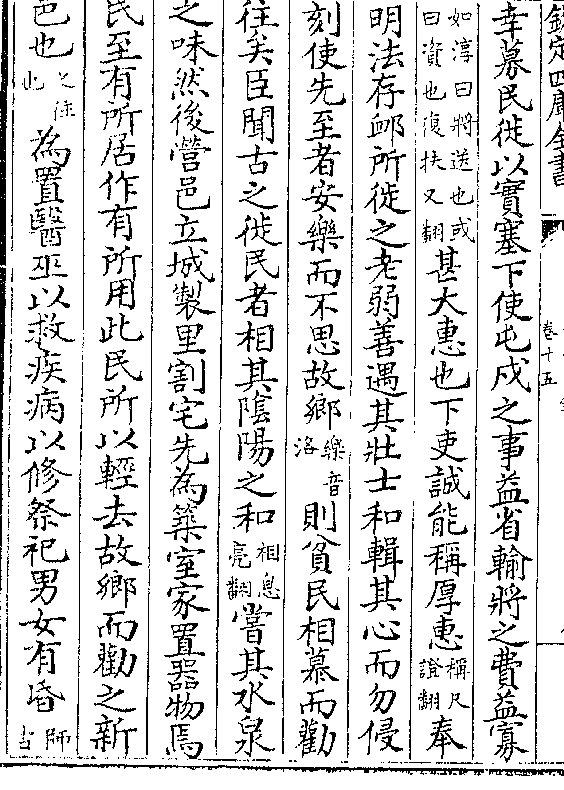 欽定四庫全書
卷十五
幸募民徙以實塞下使屯戍之事益省輸將之費益寡
如淳曰將送也或曰資也復扶又翻甚大惠也下吏誠能稱厚惠稱尺證翻奉
明法存䘏所徙之老弱善遇其壯士和輯其心而勿侵
刻使先至者安樂而不思故鄉樂音洛則貧民相慕而勸
往矣臣聞古之徙民者相其陰陽之和相息亮翻嘗其水泉
之味然後營邑立城製里割宅先為築室家置器物焉
民至有所居作有所用此民所以輕去故鄉而勸之新
邑也之往也為置醫巫以救疾病以修祭祀男女有昬師古